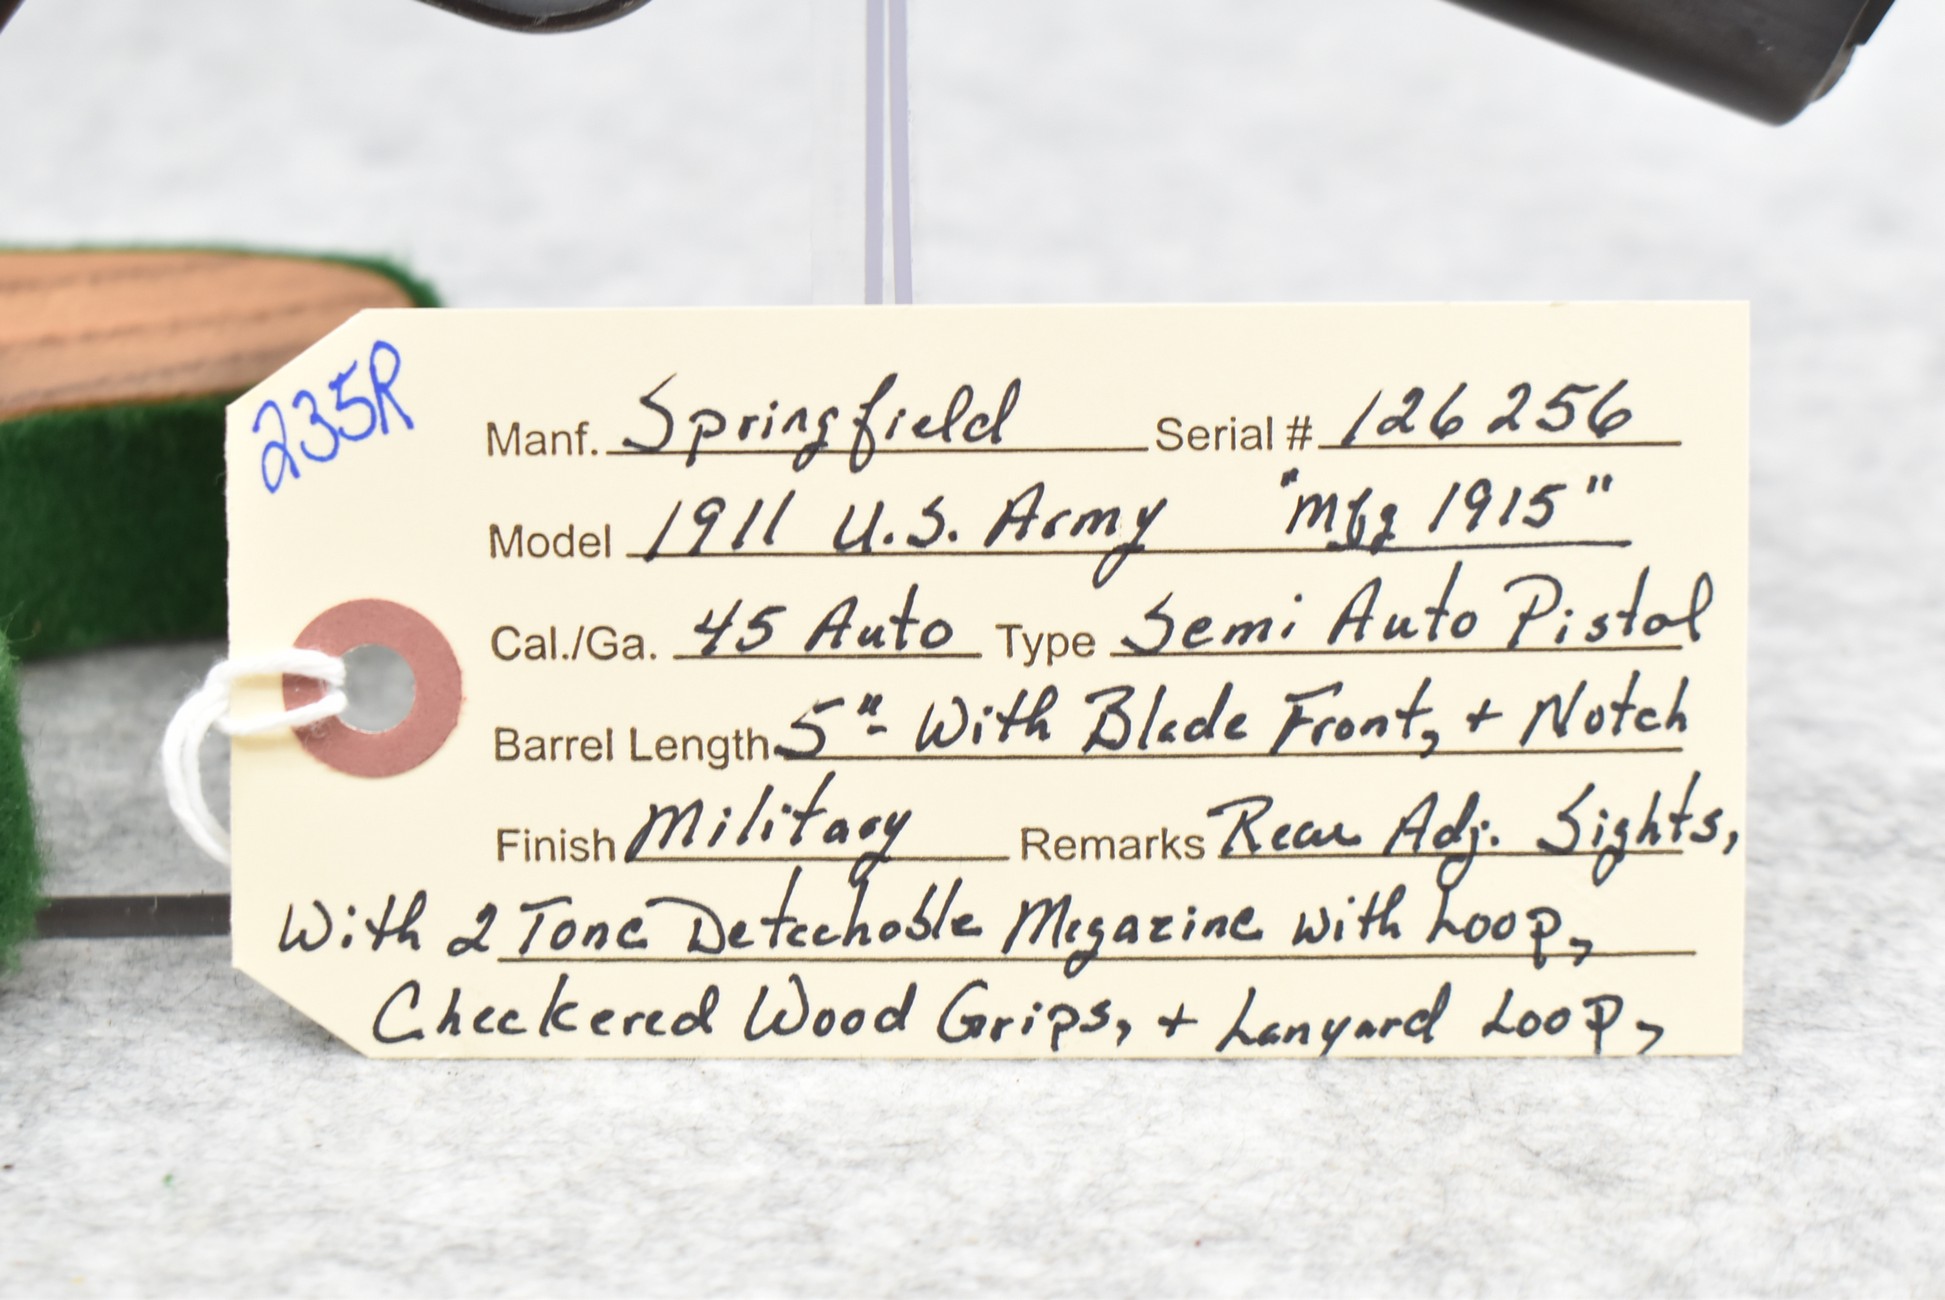 235R
Manf. Springfield Serial # 126256
Model 1911 U.S. Army "Mfg 1915"
Cal./Ga. 45 Auto Type Semi Auto Pistol
Barrel Length 5"- With Blade Front, + Notch
Finish Military Remarks Rear Adj. Sights,
With 2 Tone Detachable Magazine with Loop,
Checkered Wood Grips, + Lanyard Loop,